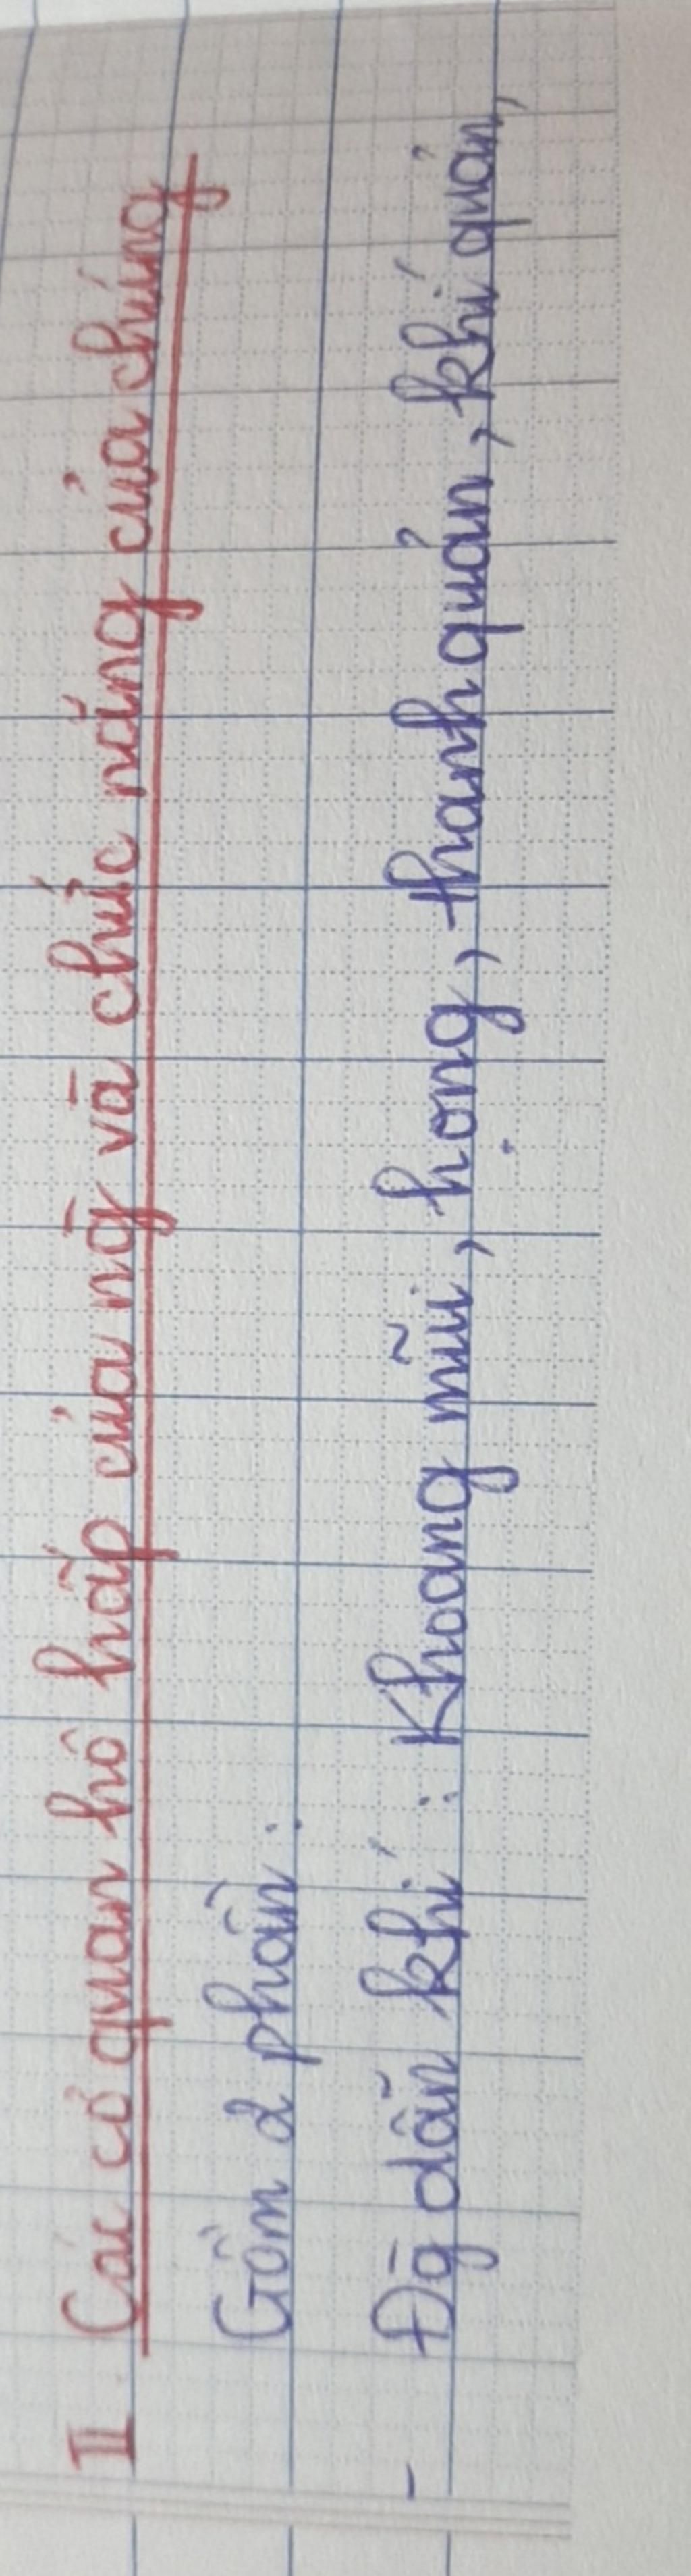 II Các cơ quan hô hấp của ng̅ và chức năng của chúng
Gồm 2 phần:
- Đg̅ dẫn khí: Khoang mũi, họng, thanh quản, khí quản,